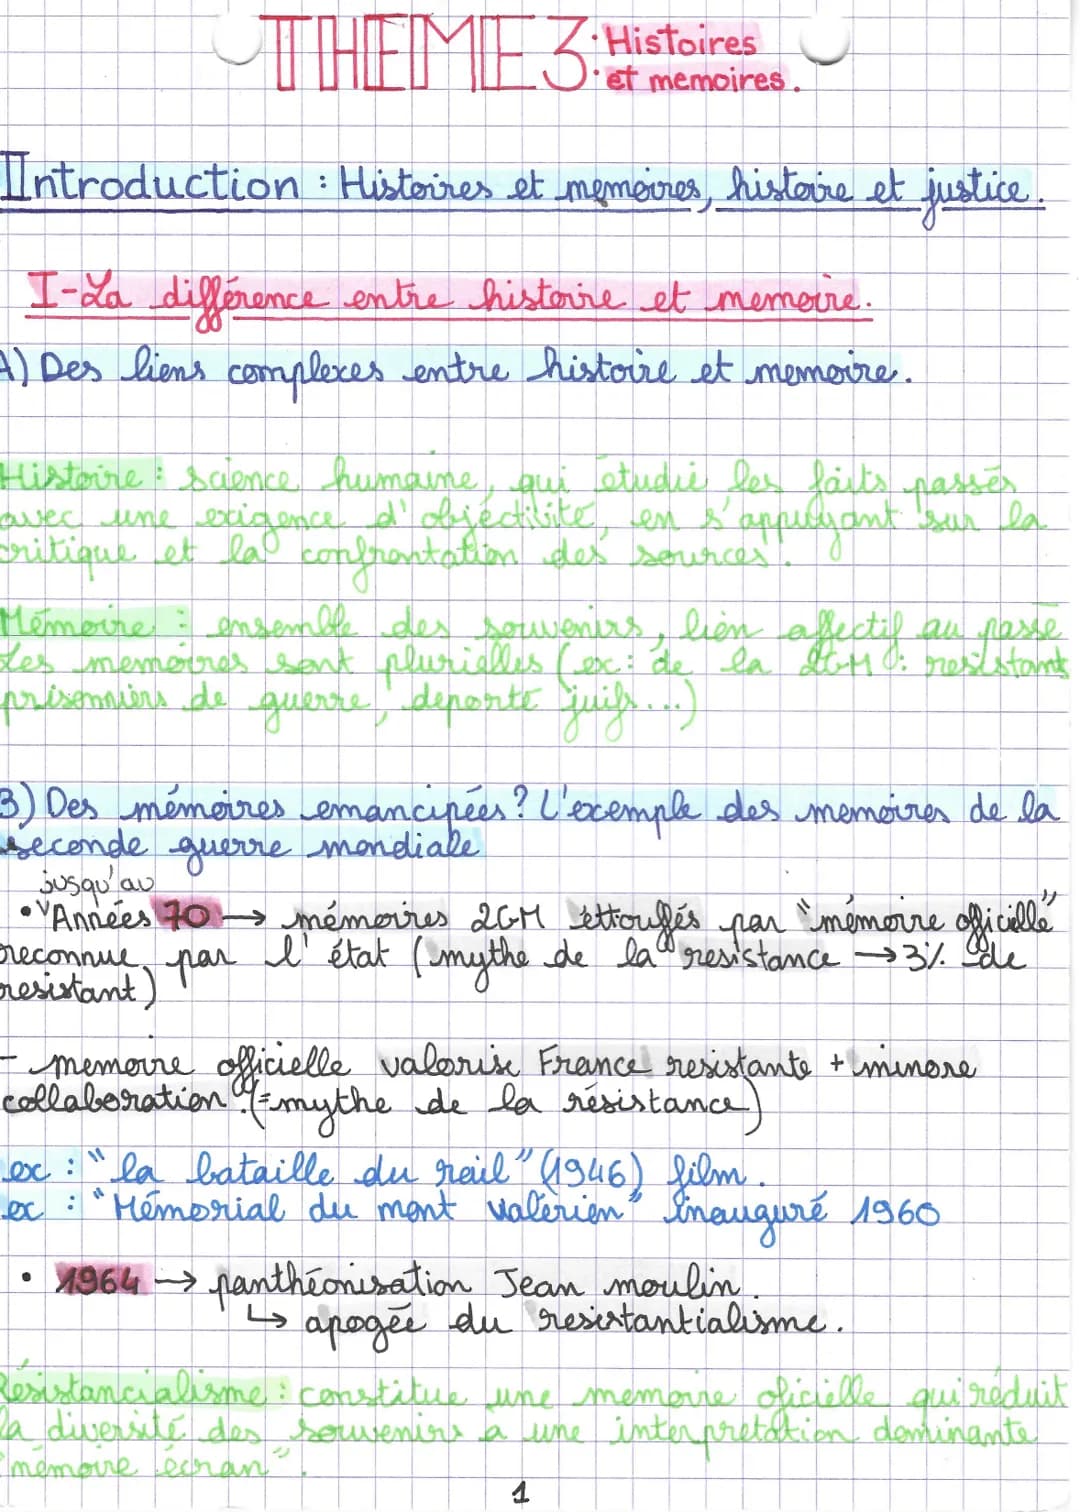 THEME 3: Histoires
et memoires.
Introduction : Histoires et memoires, histoire et justice.
I-La différence entre histoire et memoire.
A) Des liens complexes entre histoire et memoire.
Histoire : science humaine, qui étudie les faits passés
avec une exigence d'objectivité, en s'appuyant sur la
critique et la confrontation des sources.
Mémoire : ensemble des souvenirs, lien affectif au passé
Les memoires sont plurielles (ex : de la 2GM : resistant
prisonniers de guerre, deporté juifs...)
B) Des mémoires emancipées? L'exemple des memoires de la
seconde guerre mondiale
jusqu'au
• Années 70 → mémoires 2GM ettouffés par "mémoire officielle"
reconnue par l'état (mythe de la resistance → 3% de
resistant)
- memoire officielle valorise France resistante + minore
collaboration (=mythe de la résistance)
ex : "la bataille du rail" (1946) film.
ex : "Mémorial du mont valérien" inauguré 1960
• 1964 → panthéonisation Jean moulin.
↳ apogée du resistantialisme.
Résistancialisme : constitue une memoire oficielle qui réduit
la diversité des souvenirs à une interpretation dominante
"mémoire écran".
1